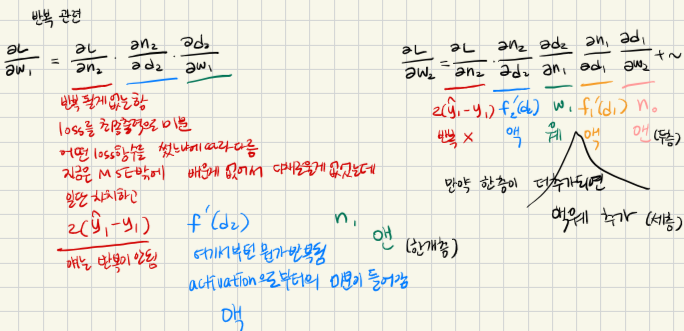 반복 관련
∂L/∂w₁ = ∂L/∂n₂ · ∂n₂/∂d₂ · ∂d₂/∂w₁
반복될게 없는항
loss를 최종출력으로 미분
어떤 loss함수를 썼느냐에 따라 다름
지금은 MSE밖에 배운게 없어서 다채로울게 없었는데
일단 차치하고
2(ŷ₁-y₁)
얘는 반복이 안됨
f'(d₂)
여기서부턴 뭔가 반복됨
activation으로부터의 미분이 들어감
액
n₁
앤 (한개층)
∂L/∂w₂ = ∂L/∂n₂ · ∂n₂/∂d₂ ∂d₂/∂n₁ ∂n₁/∂d₁ ∂d₁/∂w₂ + ~
2(ŷ₁-y₁) f₂'(d₂) w₁ f₁'(d₁) n₀
반복 x 액 웨 액 앤 (두층)
만약 한층이 더 추가되면
액웨 추가 (세층)